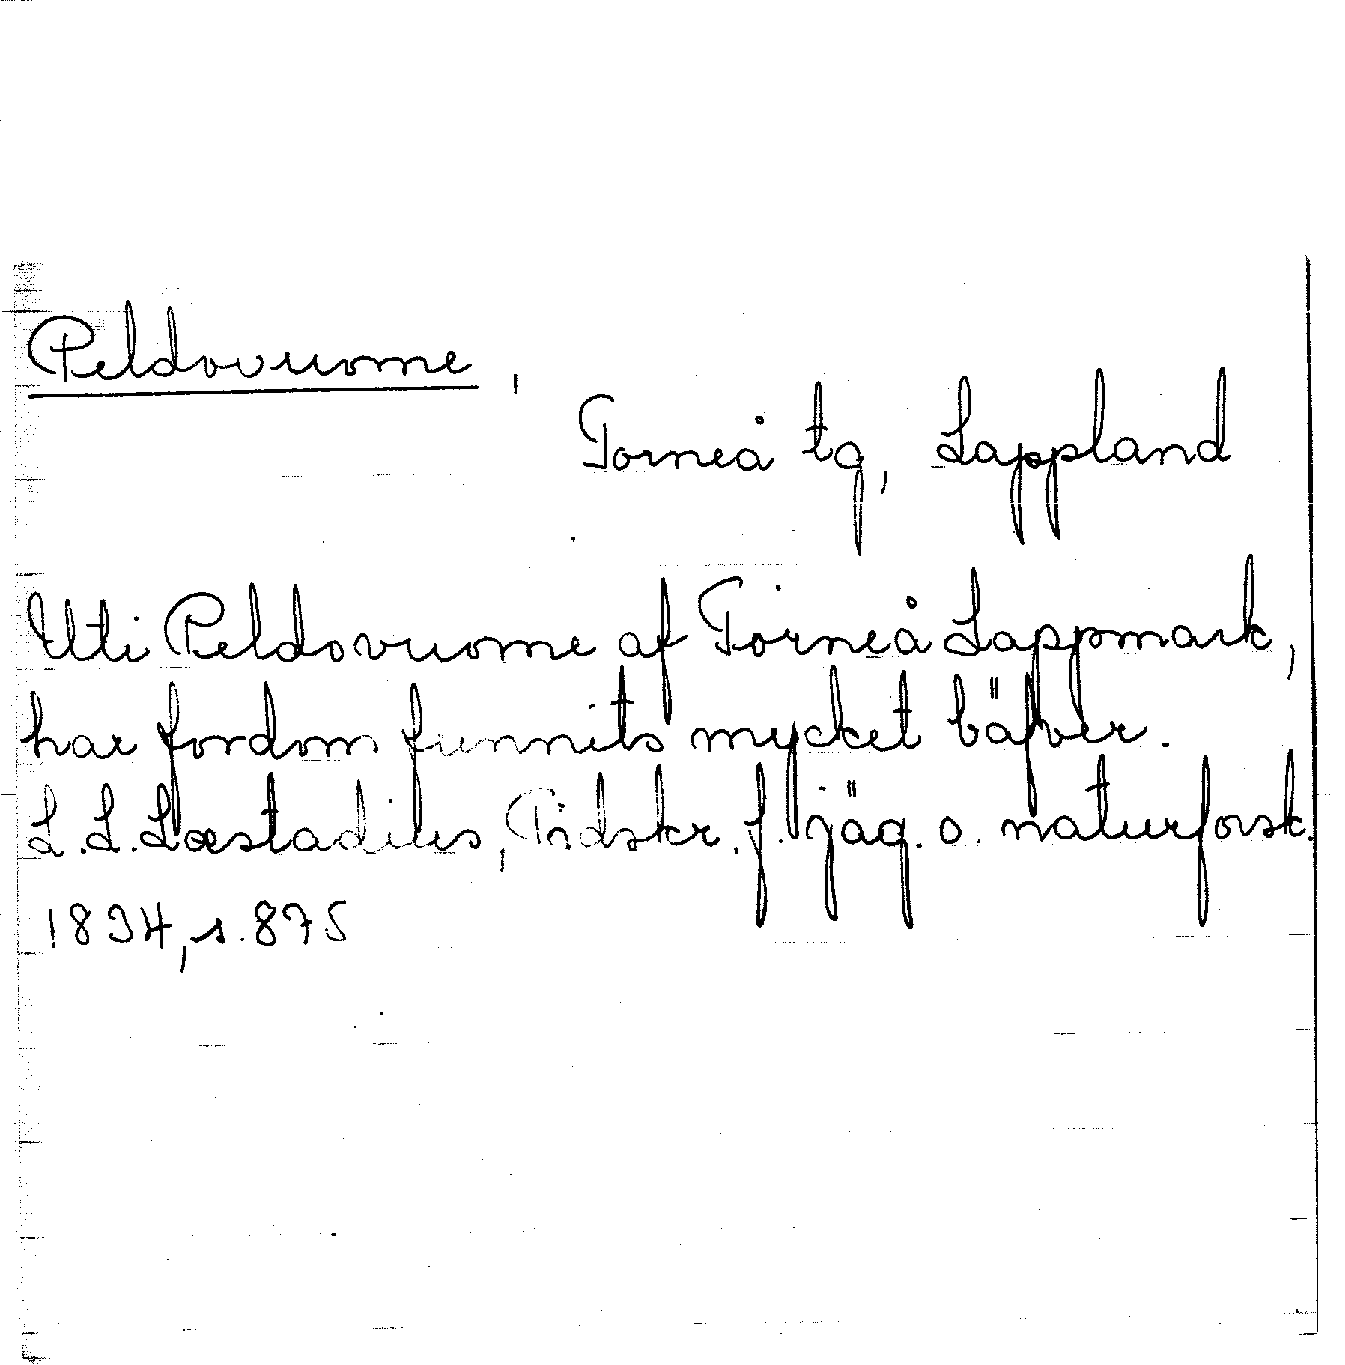 Peldovuome,
Torneå tg, Lappland
Uti Peldovuome af Torneå Lappmark,
har fordom funnits mycket bäfver.
L.L.Læstadius, Tidskr. f. jäg. o. naturforsk.
1834, s. 875